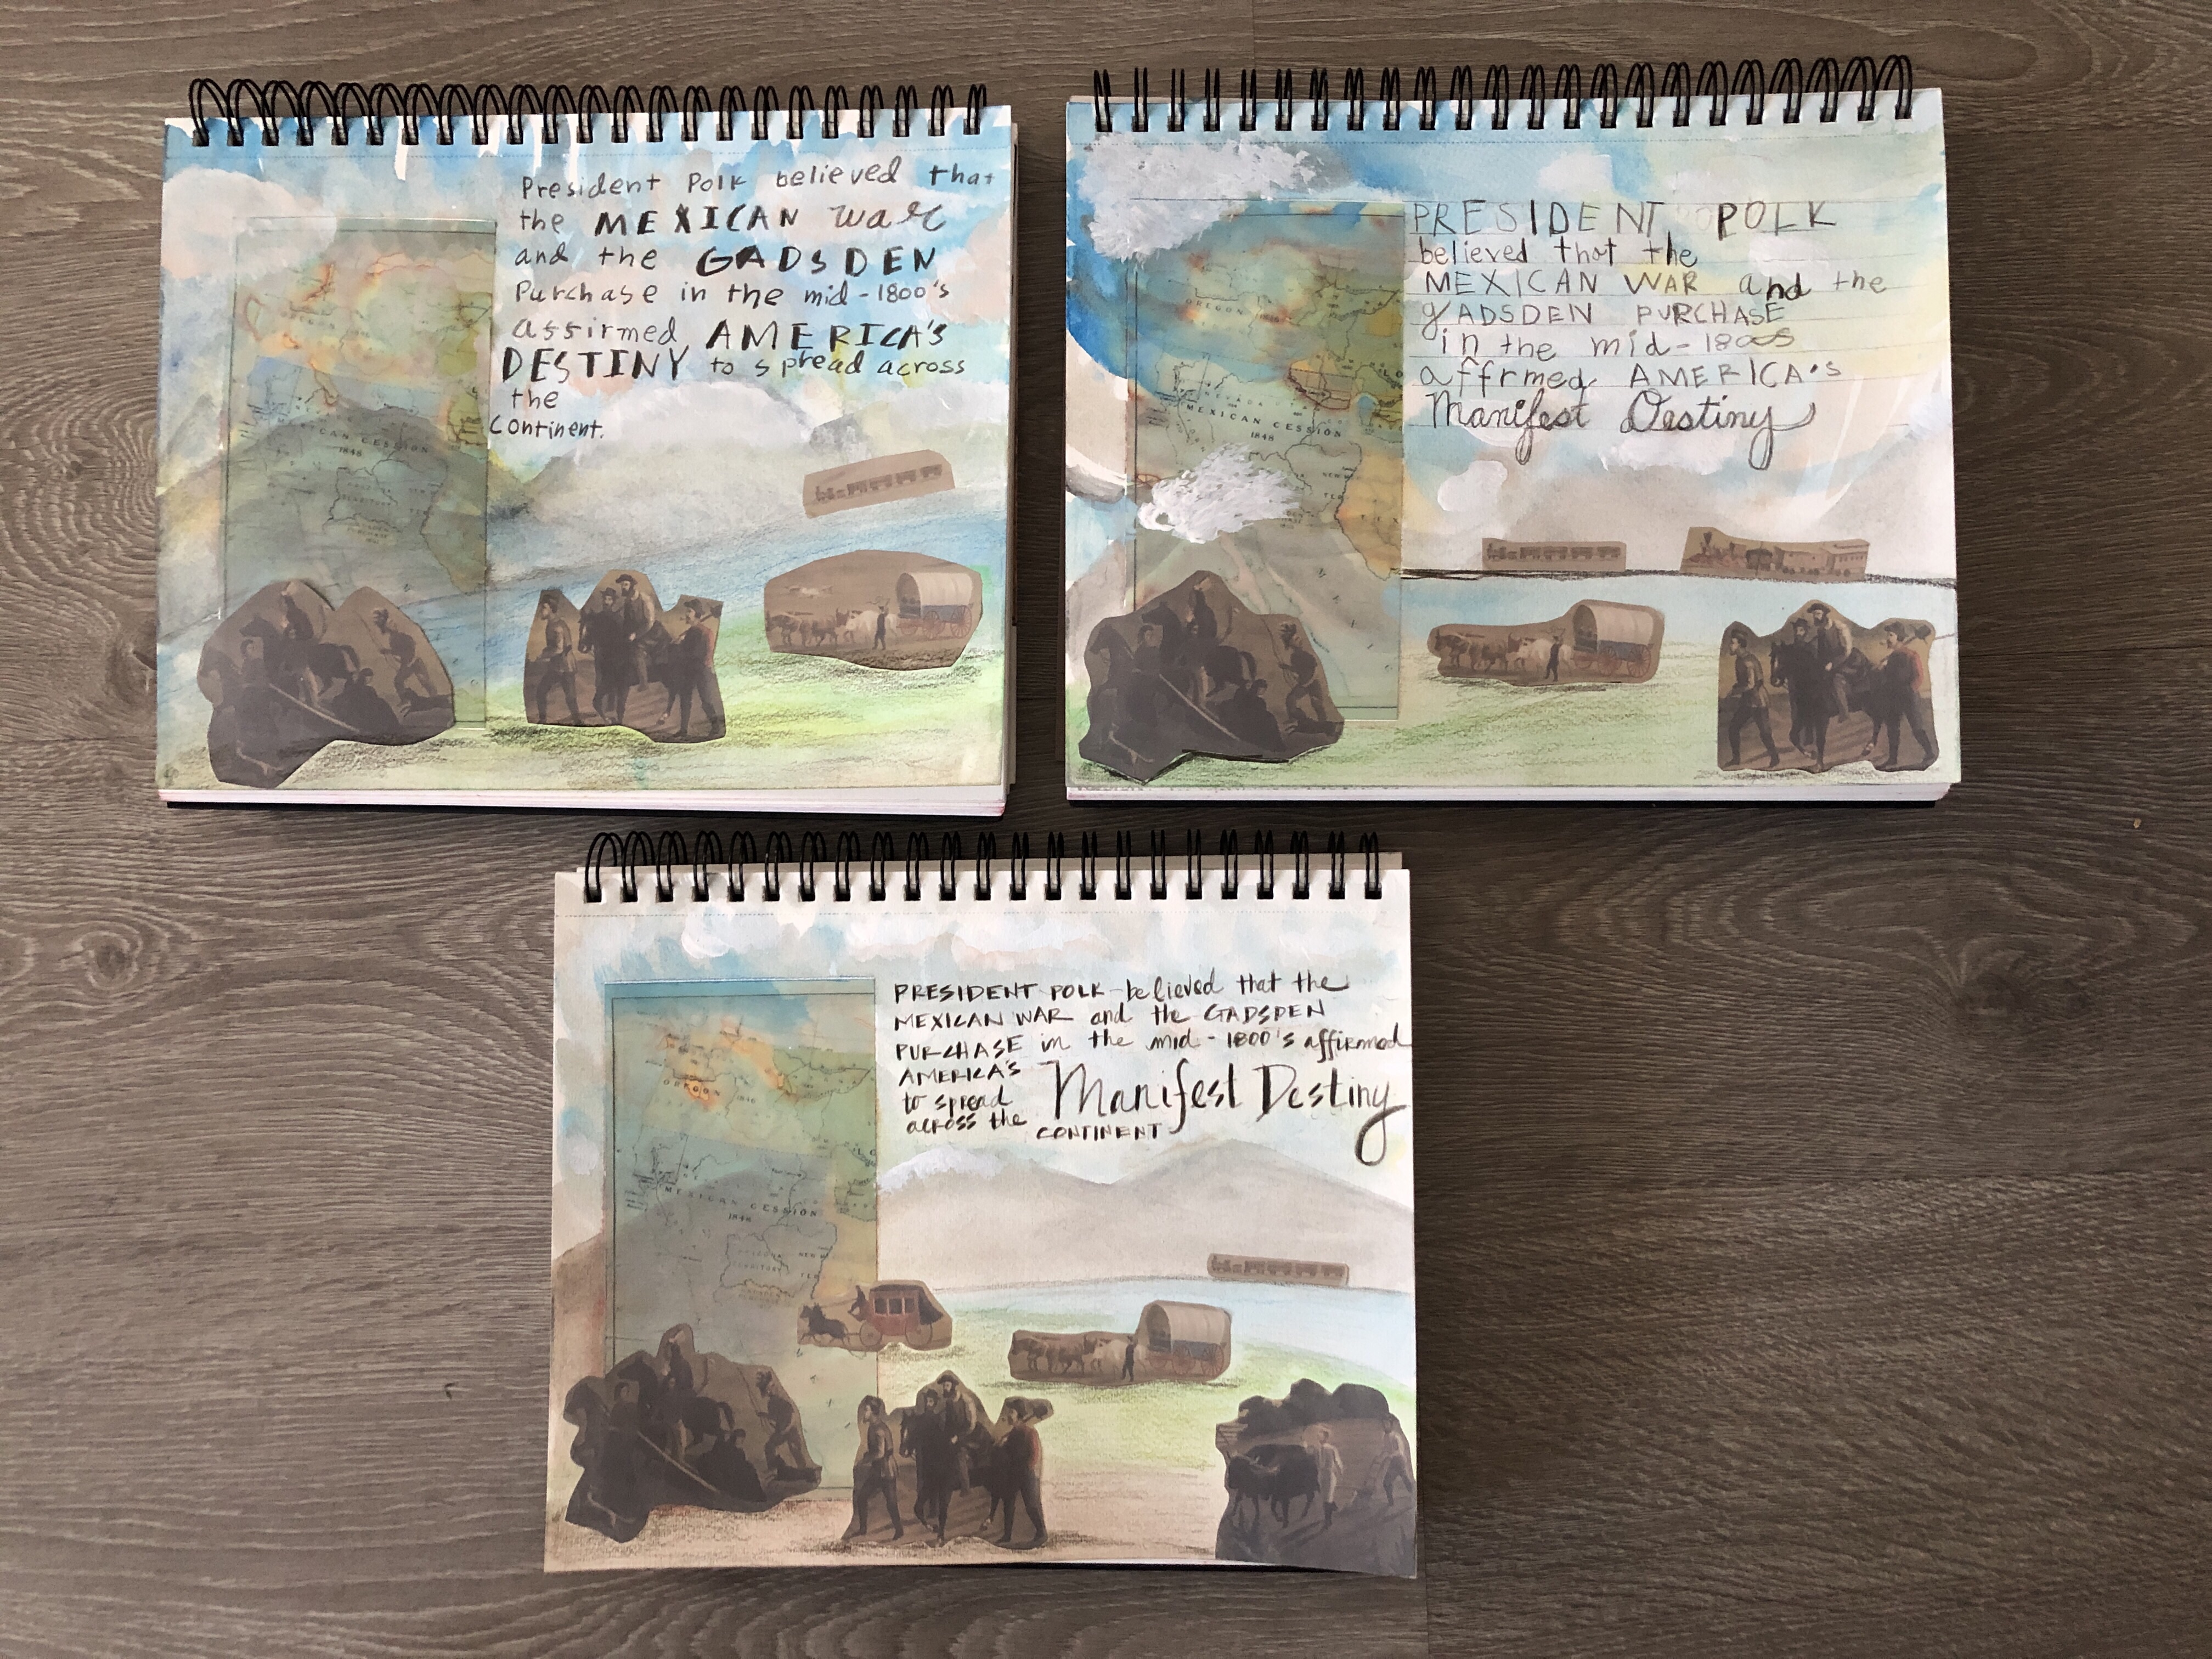 President Polk believed that
the MEXICAN war
and the GADSDEN
Purchase in the mid-1800's
assirmed AMERICA'S
DESTINY to spread across
the
Continent.
OREGON
MEXICAN CESSION
1848
PRESIDENT POLK
believed that the
MEXICAN WAR and the
gADSDEN PURCHASE
in the mid-1800s
affrmed AMERICA'S
Manifest Destiny
OREGON 1846
NEVADA
MEXICAN CESSION
1848
PRESIDENT POLK believed that the
MEXICAN WAR and the GADSDEN
PURCHASE in the mid-1800's affirmed
AMERICA'S Manifest Destiny
to spread
across the
CONTINENT
OREGON 1846
MEXICAN CESSION
1848
TERRITORY